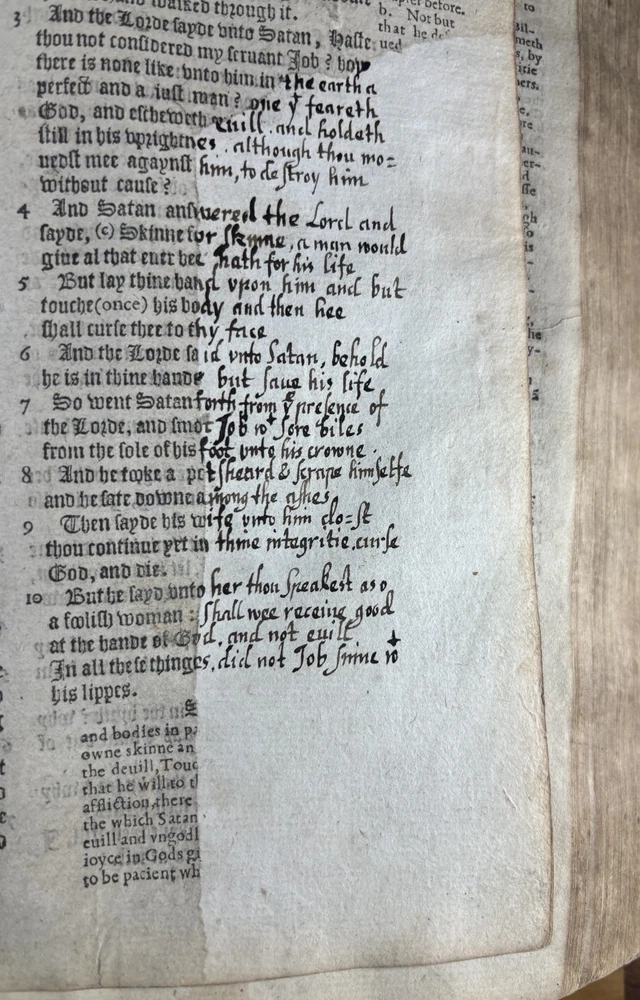 walked through it.
3 And the Lorde sayde vnto Satan, Hast
thou not considered my seruant Job? how
there is none like vnto him in the earth a
perfect and a iust man? one yͤ feareth
God, and escheweth euill. and holdeth
still in his vprightnes. although thou mo=
uedst mee agaynst him, to destroy him
without cause?
4 And Satan answered the Lord and
sayde, (c) Skinne for skinne, a man would
giue al that euer hee hath for his life
5 But lay thine hand vpon him and but
touche (once) his body and then hee
shall curse thee to thy face
6 And the Lorde said vnto Satan, behold
he is in thine hande but saue his life
7 So went Satan forth from yͤ presence of
the Lorde, and smot Job wͭ sore biles
from the sole of his foot vnto his crowne.
8 And he tooke a potsheard & scrape himselfe
and he sate downe among the ashes
9 Then sayde his wife vnto him do=st
thou continue yet in thine integritie. curse
God, and die.
10 But he sayd vnto her thou speakest as o
a foolish woman: shall wee receiue good
at the hande of God. and not euill
In all these thinges, did not Job sinne wͭ
his lippes.
and bodies in
owne skinne an
the deuill, Touc
that he will to t
affliction, there
the which Satan
euill and vngodl
ioyce in Gods
to be pacient wh
before.
b. Not but
that he
ued
to
meth
s, by